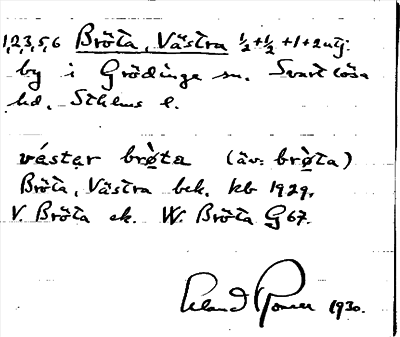 1,2,3,5,6 Bröta, Västra ½+½+1+2utj.
by i Grödinge sn. Svartlösa
hd. Sthlms l.
västar bro̱ta (äv. bro̱ta)
Bröta, Västra bek. kb 1929.
V. Bröta ek. W. Bröta G67.
Erland Rosell 1930.